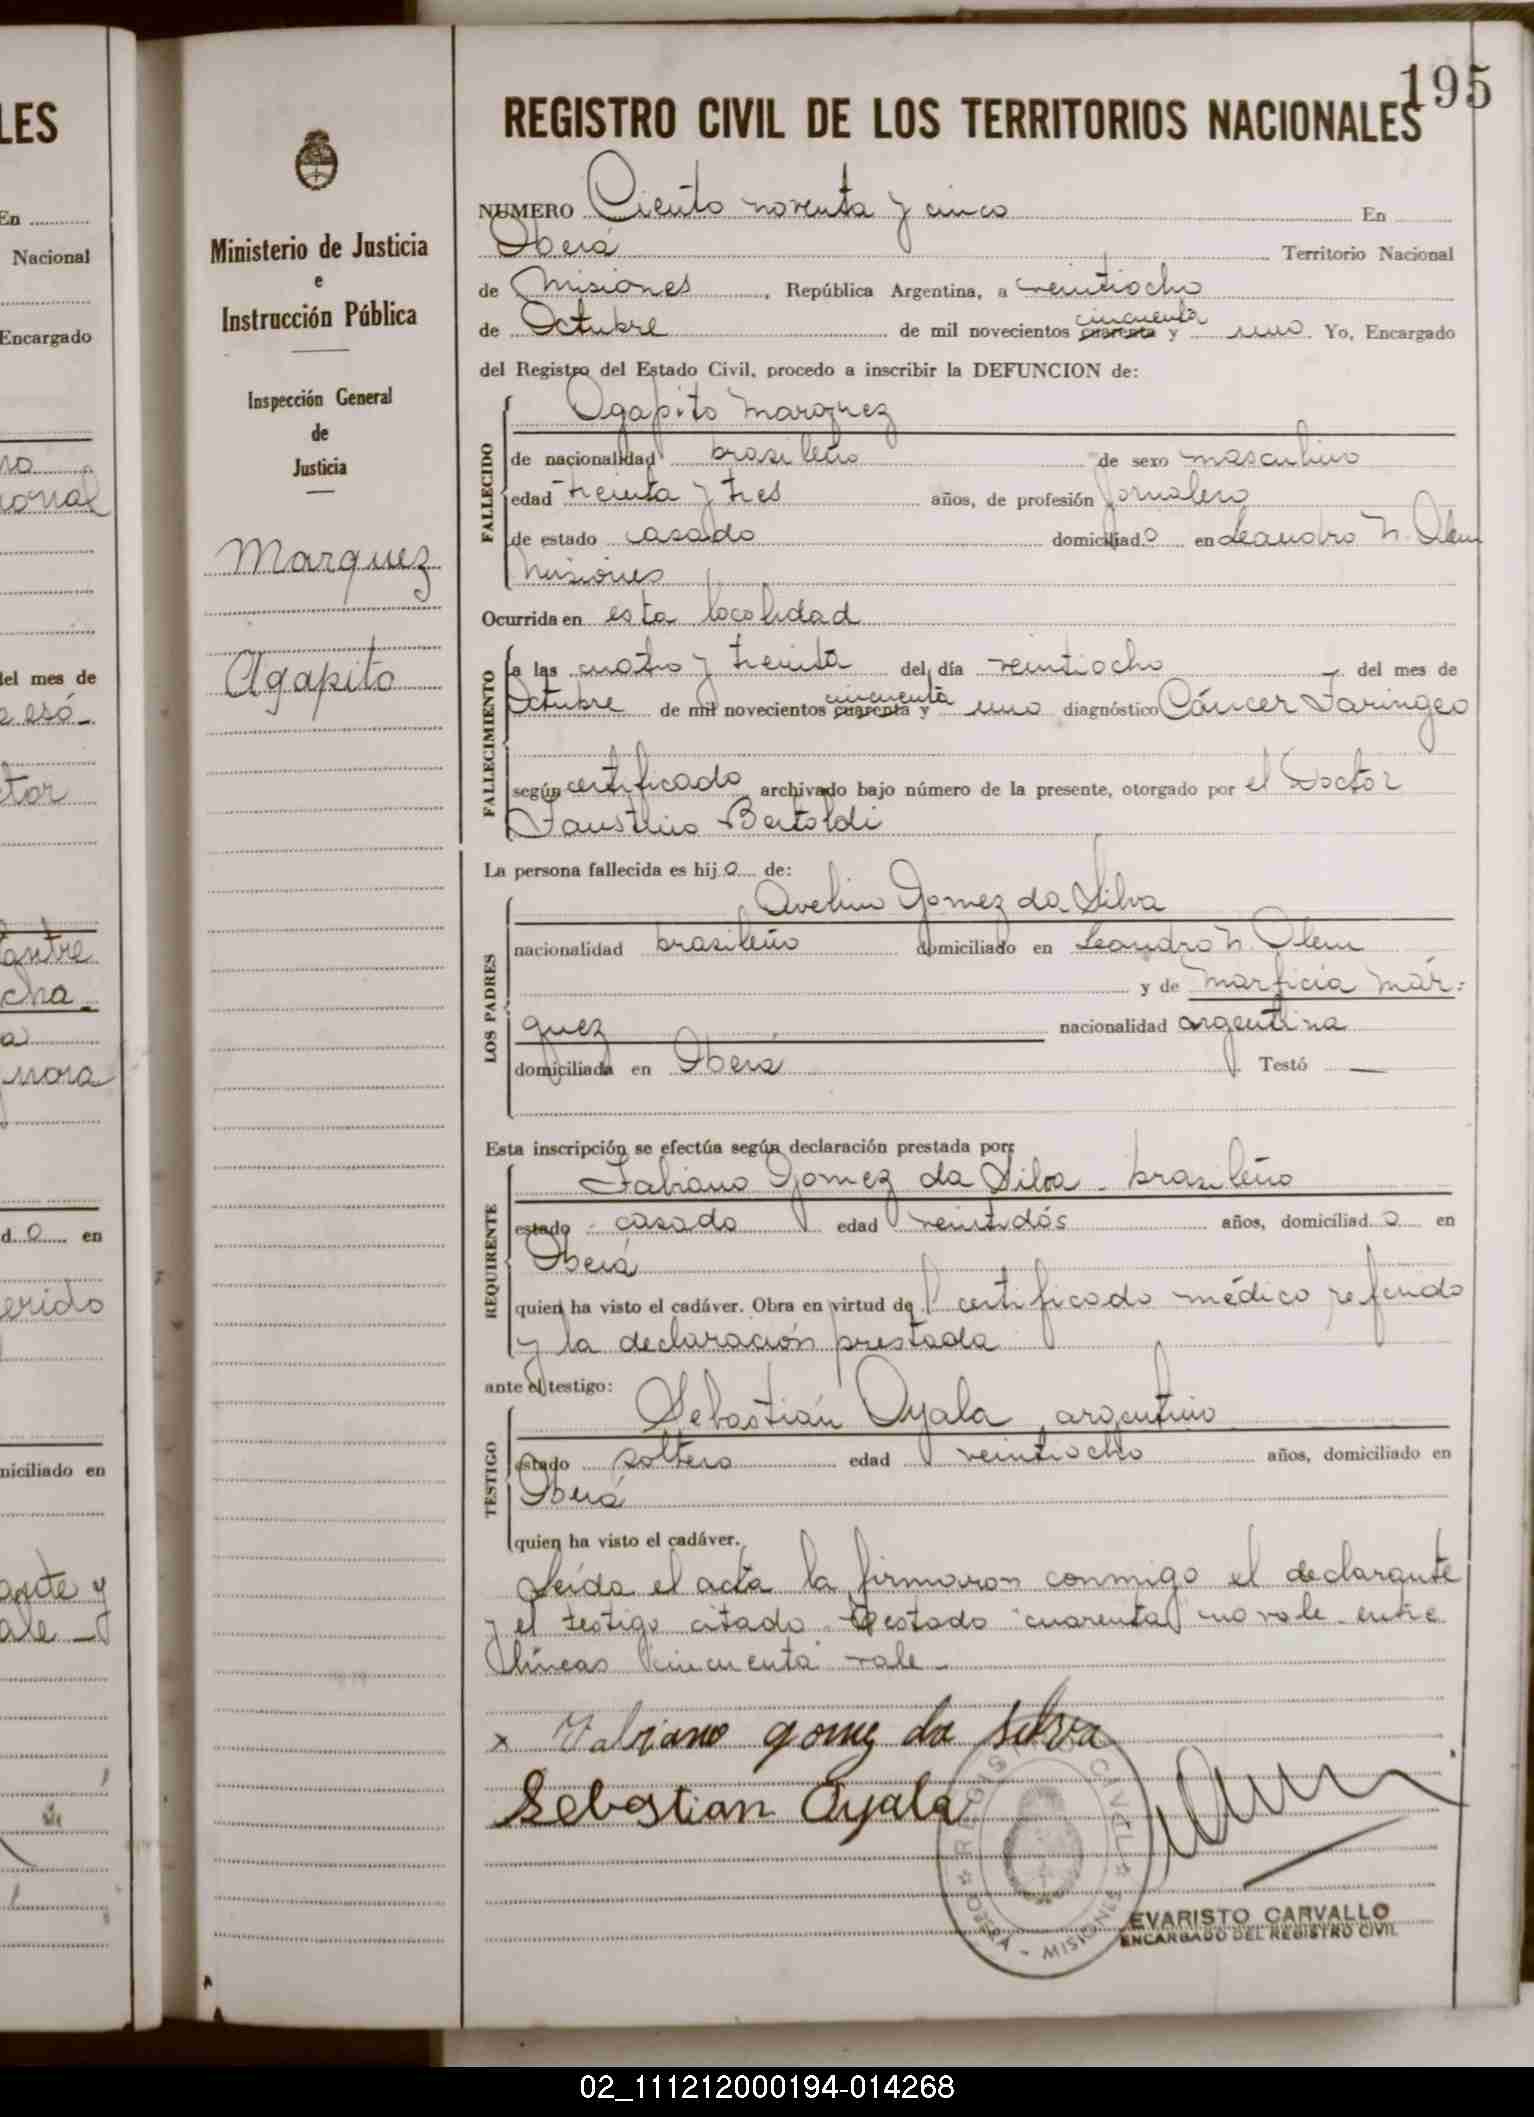 LES
En
Nacional
Encargado
ional
del mes de
d o en
erido
miciliado en
195
REGISTRO CIVIL DE LOS TERRITORIOS NACIONALES
Ministerio de Justicia
e
Instrucción Pública
Inspección General
de
Justicia
Marquez
Agapito
NUMERO Ciento noventa y cinco En
Oberá Territorio Nacional
de Misiones, República Argentina, a veintiocho
cincuenta
de Octubre de mil novecientos cuarenta y uno Yo, Encargado
del Registro del Estado Civil, procedo a inscribir la DEFUNCION de:
FALLECIDO
Agapito Marquez
de nacionalidad brasileño de sexo masculino
edad treinta y tres años, de profesión jornalero
de estado casado domiciliad o en Leandro N. Alem
Misiones
Ocurrida en esta localidad
FALLECIMIENTO
a las cuatro y treinta del día veintiocho del mes de
cincuenta
Octubre de mil novecientos cuarenta y uno diagnóstico Cáncer Faringeo
según certificado archivado bajo número de la presente, otorgado por el Doctor
Faustino Bertoldi
La persona fallecida es hij o de:
LOS PADRES
Avelino Gomez da Silva
nacionalidad brasileño domiciliado en Leandro N. Alem
y de Marficia Már-
quez nacionalidad argentina
domiciliada en Oberá Testó —
Esta inscripción se efectúa según declaración prestada por:
REQUIRENTE
Fabiano Gomez da Silva - brasileño
estado casado edad veintidós años, domiciliad o en
Oberá
quien ha visto el cadáver. Obra en virtud de certificado médico referido
y la declaración prestada
ante el testigo:
TESTIGO
Sebastián Ayala, argentino
estado soltero edad veintiocho años, domiciliado en
Oberá
quien ha visto el cadáver.
Leída el acta la firmaron conmigo el declarante
y el testigo citado. Testado "cuarenta" no vale - entre
líneas "cincuenta" vale -
x Fabriano gomez da silva
Sebastian Ayala
REGISTRO CIVIL
OBERA - MISIONES
EVARISTO CARVALLO
ENCARGADO DEL REGISTRO CIVIL
02_111212000194-014268